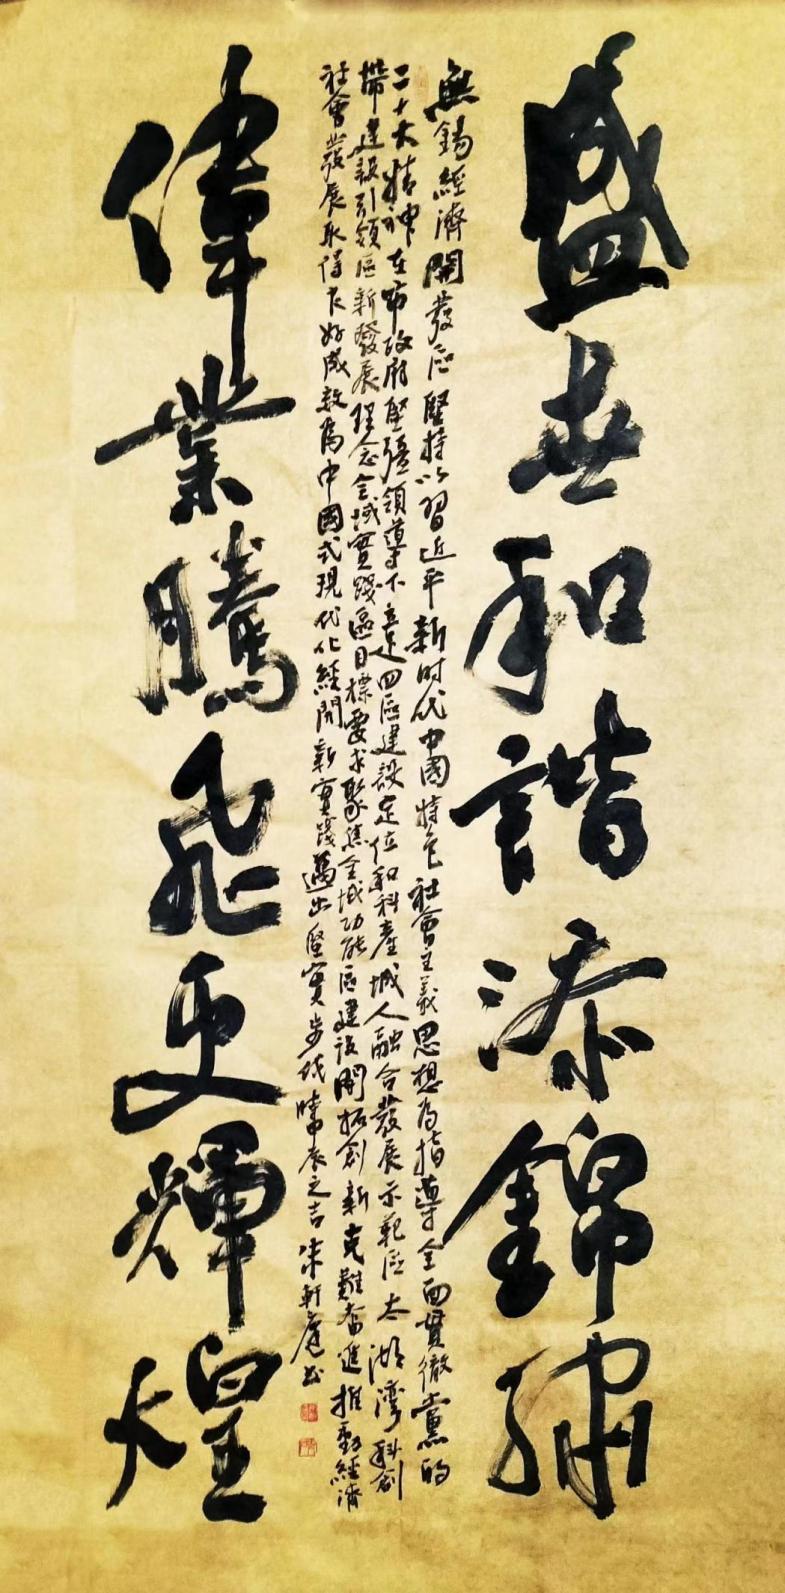 盛世和諧添錦繡
無錫經濟開發区堅持以習近平新时代中國特色社會主義思想为指導全面貫徹黨的
二十大精神在市政府堅強領導下立足四區建設定位和科產城人融合發展示範區太湖灣科創
帶建設引領區新發展理念全域實踐區目標要求聚焦全域功能區建設開拓創新克難奮進推動經濟
社會發展取得良好成效為中國式現代化經開新實踐邁出堅實步伐時甲辰之吉朱軒庭书
偉業騰飛更輝煌